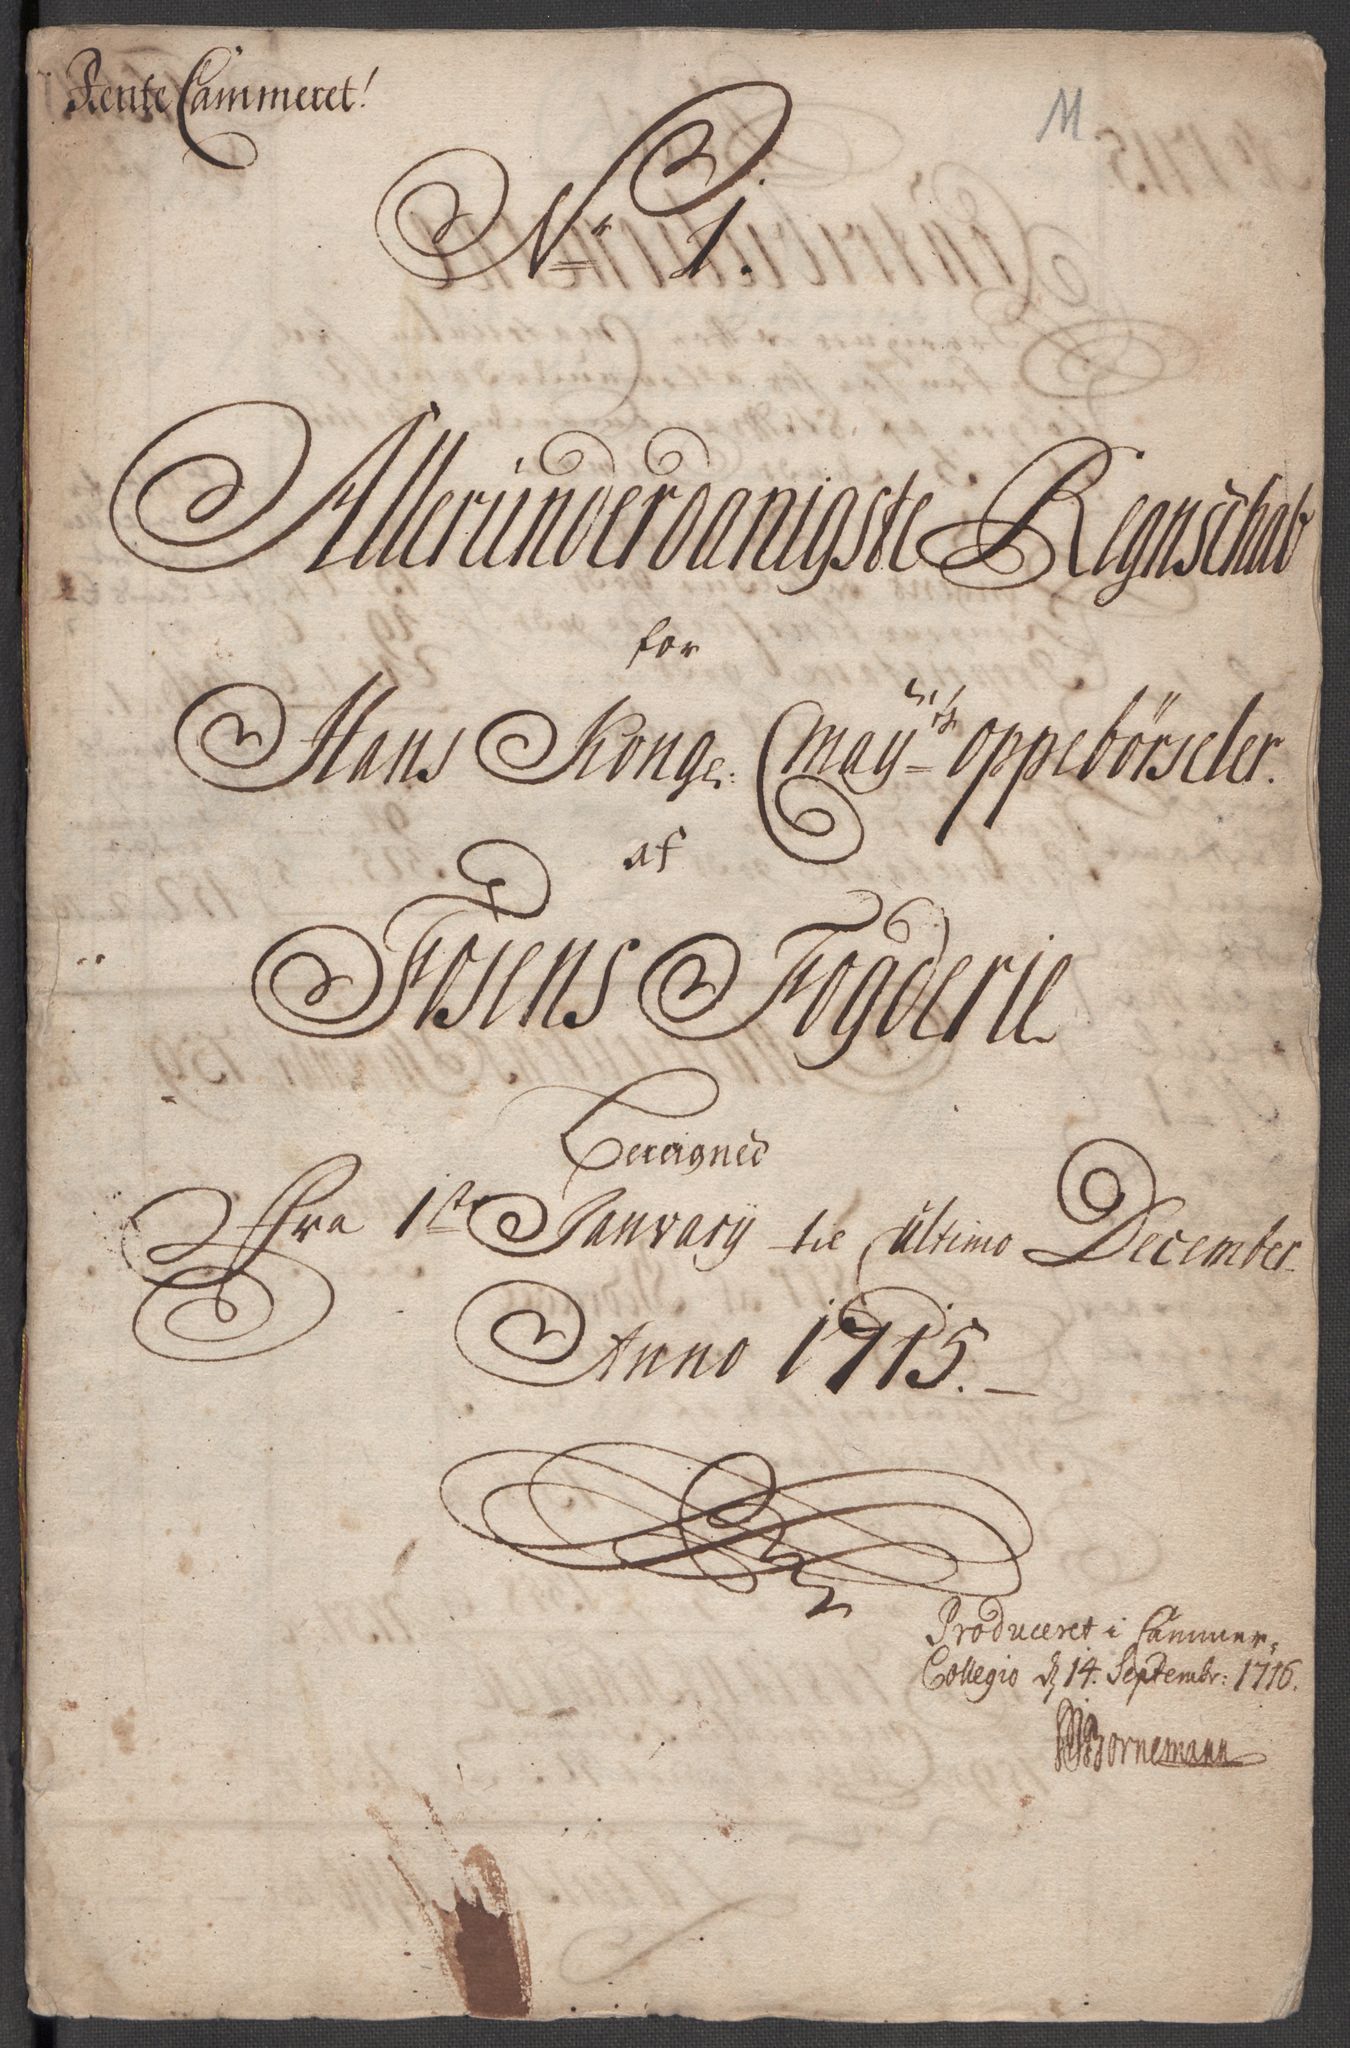 Rente Cammeret!
M
No 1.
Alleründerdanigste Regnschab
for
Hans Konge: Mayts oppebörseler.
af
Fosens Fogderie
Bereigned
Fra 1ste January til ultimo December
Anno 1715.
Produceret i Cammer-
Collegio d 14. Septembr: 1716.
Bornemann